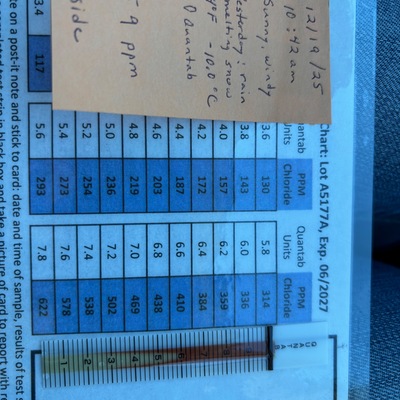 12/9/25
10:42 am
Sunny, windy
Yesterday: rain
melting snow
10.0°C
Quantab
9 ppm
side
Chart: Lot A5177A, Exp. 06/2027
Quantab Units PPM Chloride Quantab Units PPM Chloride
3.6 130 5.8 314
3.8 143 6.0 336
4.0 157 6.2 359
4.2 172 6.4 384
4.4 187 6.6 410
4.6 203 6.8 438
4.8 219 7.0 469
5.0 236 7.2 502
5.2 254 7.4 538
5.4 273 7.6 578
3.4 117 5.6 293 7.8 622
QUANTAB
8
7
6
5
4
3
2
1
on a post-it note and stick to card: date and time of sample, results of test
test strip in black box and take a picture of card to report with